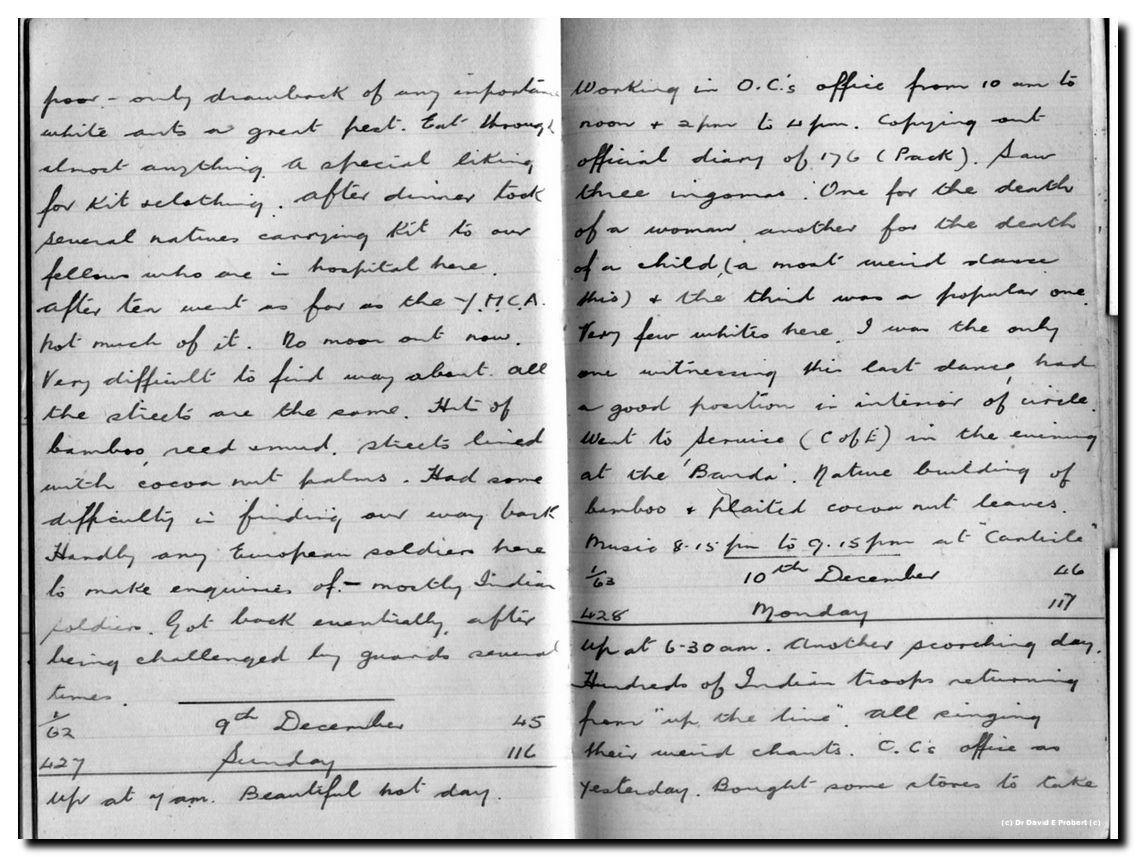 poor - only drawback of any importan
white ants a great pest. Eat through
almost anything. A special liking
for kit & clothing. After dinner took
several natives carrying kit to our
fellows who are in hospital here.
After tea went as far as the Y.M.C.A.
Not much of it. No moon out now.
Very difficult to find way about. All
the streets are the same. Hut of
bamboo, reed & mud. Streets lined
with cocoa nut palms. Had some
difficulty in finding our way back
Hardly any European soldiers here
to make enquiries of - mostly Indian
soldiers. Got back eventually, after
being challenged by guards several
times.
1/62 9th December 45
427 Sunday 116
Up at 7 am. Beautiful hot day.
Working in O.C.'s office from 10 am to
noon & 2 pm to 4 pm. Copying out
official diary of 176 (Pack). Saw
three ingomas. One for the death
of a woman another for the death
of a child, (a most weird dance
this) & the third was a popular one.
Very few whites here. I was the only
one witnessing this last dance, had
a good position in interior of circle.
Went to Service (C of E) in the evening
at the 'Banda'. Native building of
bamboo & plaited cocoa nut leaves.
Music 8.15 pm to 9.15 pm at "
1/63 10th December 46
428 Monday 117
Up at 6-30 am. Another scorching day.
Hundreds of Indian troops returning
from "up the line". All singing
their weird chants. O.C.'s office as
yesterday. Bought some stores to take
(c) Dr David E Probert (c)